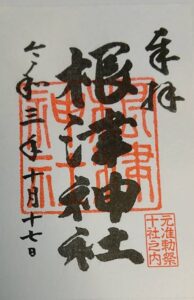 奉拝
根津神社
令和三年十月十七日
根津
神社
元准勅祭
十社之内